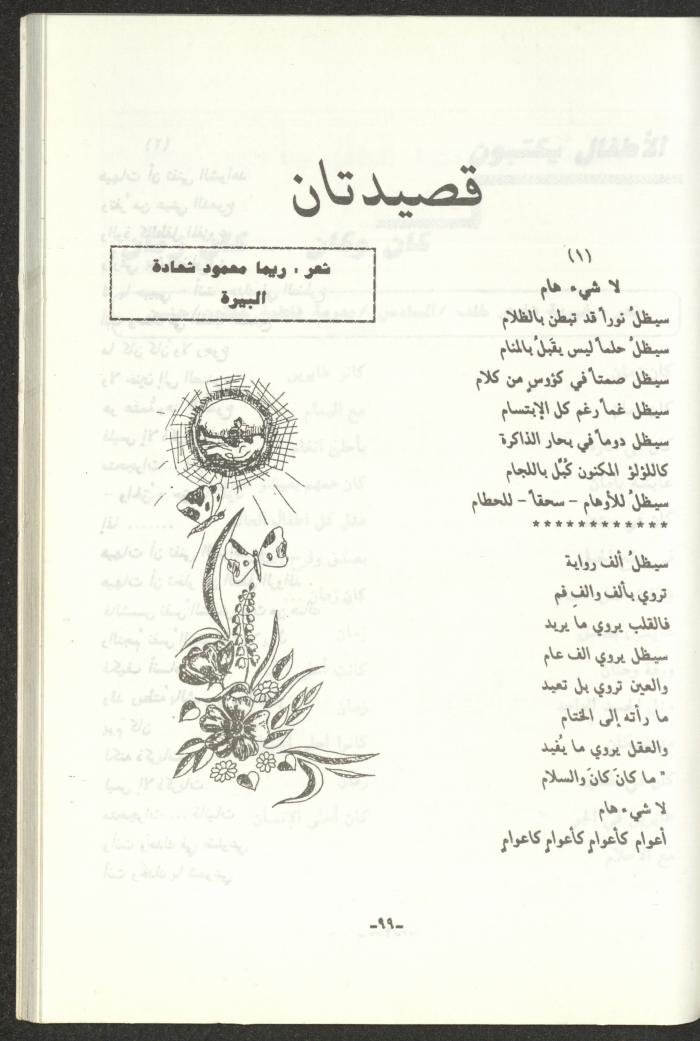 قصيدتان
شعر : ريما محمود شحادة
البيرة
(١)
لا شيء هام
سيظلُ نوراً قد تبطن بالظلام
سيظلُ حلماً ليس يقبَلُ بالمنام
سيظل صمتاً في كؤوسٍ من كلام
سيظل غماً رغم كل الإبتسام
سيظل دوماً في بحار الذاكرة
كاللؤلؤ المكنون كُبِّل باللجام
سيظلُ للأوهام - سحقاً - للحطام
************
سيظلُ ألف رواية
تروي بألف والفِ فم
فالقلب يروي ما يريد
سيظل يروي الف عام
والعين تروي بل تعيد
ما رأته إلى الختام
والعقل يروي ما يُفيد
" ما كانَ كانَ والسلام
لا شيء هام
أعوام كأعوامٍ كأعوامٍ كاعوامٍ
-٩٩-